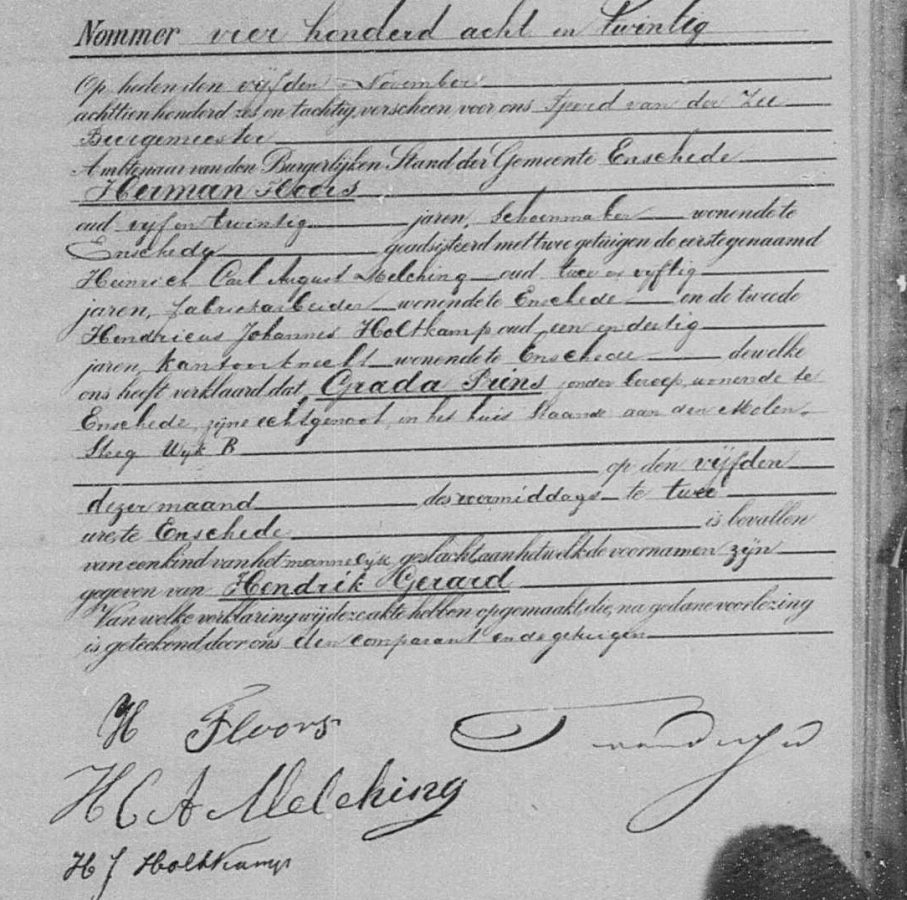 Nommer vier honderd acht en twintig
Op heden den vijfden November
achttienhonderd zes en tachtig, verscheen voor ons Sjoerd van der Zee
Burgemeester
Ambtenaar van den Burgerlijken Stand der Gemeente Enschede
Herman Floors
oud vijf en twintig jaren, schoenmaker wonende te
Enschede geadsisteerd met twee getuigen de eerste genaamd
Heinrich Carl August Melching oud twee en vijftig
jaren, fabriekarbeider wonende te Enschede en de tweede
Hendricus Johannes Holtkamp oud een en dertig
jaren, kantoorknecht wonende te Enschede dewelke
ons heeft verklaard dat Grada Prins, zonder beroep, wonende te
Enschede, zijne echtgenoot, in het huis staande aan den Molen-
steeg Wijk B
op den vijfden
dezer maand des voormiddags te twee
ure, te Enschede is bevallen
van een kind van het mannelijk geslacht, aan hetwelk de voornamen zijn
gegeven van Hendrik Gerard
Van welke verklaring wij deze akte hebben opgemaakt, die, na gedane voorlezing
is geteekend door ons den comparant en de getuigen
H Floors
H C A Melching
H J Holtkamp